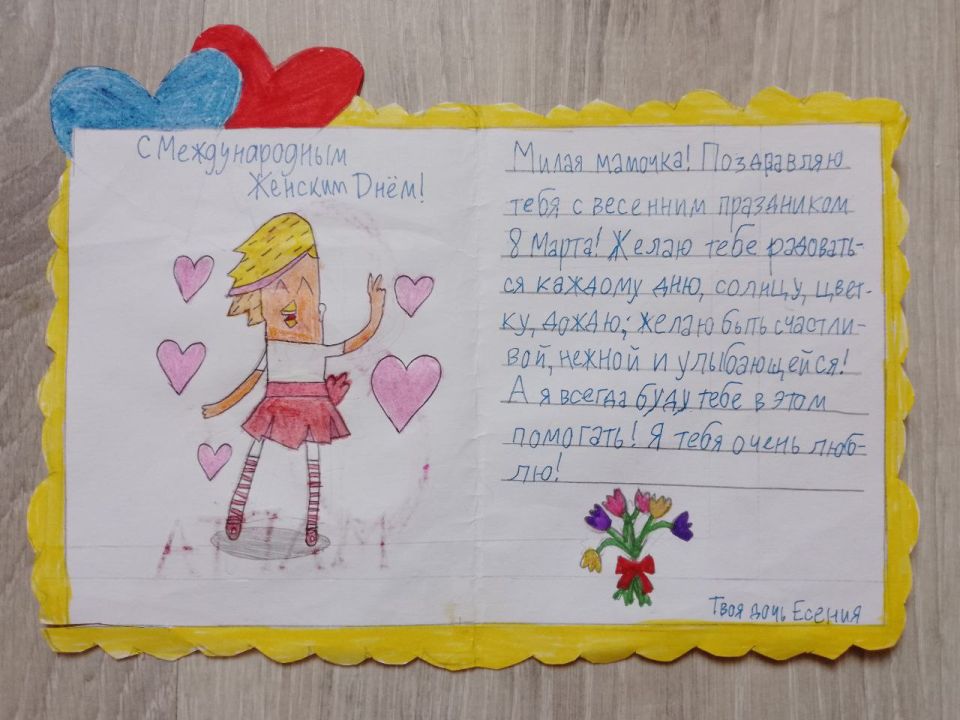 С Международным
Женским Днём!
Милая мамочка! Поздравляю
тебя с весенним праздником
8 Марта! Желаю тебе радовать-
ся каждому дню, солнцу, цвет-
ку, дождю; желаю быть счастли-
вой, нежной и улыбающейся!
А я всегда буду тебе в этом
помогать! Я тебя очень люб-
лю!
Твоя дочь Есения